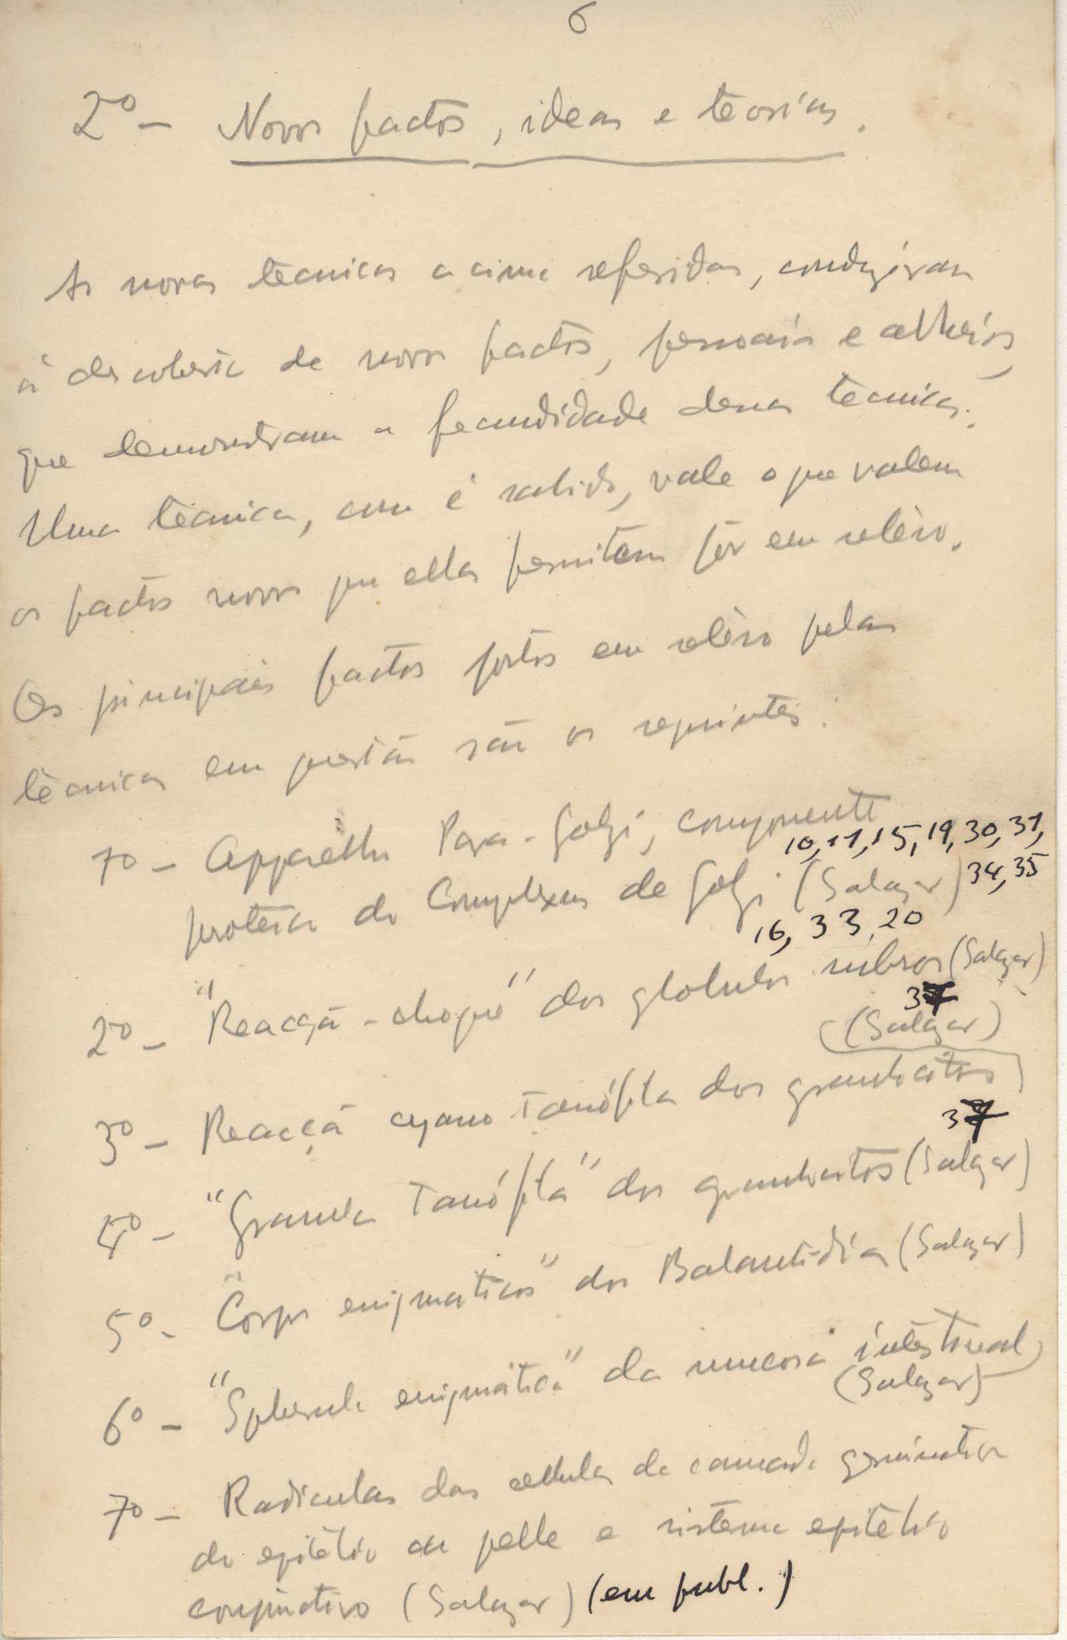 6
2º - Novos factos, ideas e teorias.
As novas técnicas acima referidas, conduziram
à descoberta de novos factos, pessoais e alheios,
que demonstram a fecundidade dessas técnicas.
Uma técnica, como é sabido, vale o que valem
os factos novos que ellas permitem pôr em relêvo.
Os principais factos postos em relêvo pelas
técnicas em questão são os seguintes:
1º - Apparelho Para-Golgi, componente
10, 11, 15, 19, 30, 31,
proteica do Complexus de Golgi (Salazar) 34, 35
16, 33, 20
2º - "Reacção-choque" dos globulos rubros (Salazar)
(Salazar)
3º - Reacção cyano tanófila dos granulocitos
4º - "Granula Tanófila" dos granulocitos (Salazar)
5º - "Corpos enigmaticos" dos Balantidia (Salazar)
6º - "Spherula enigmática" da mucosa intestinal
(Salazar)
7º - Radiculas das cellulas da camada germinativa
do epitélio da pelle e sistema epitelio
conjuntivo (Salazar) (em publ.)